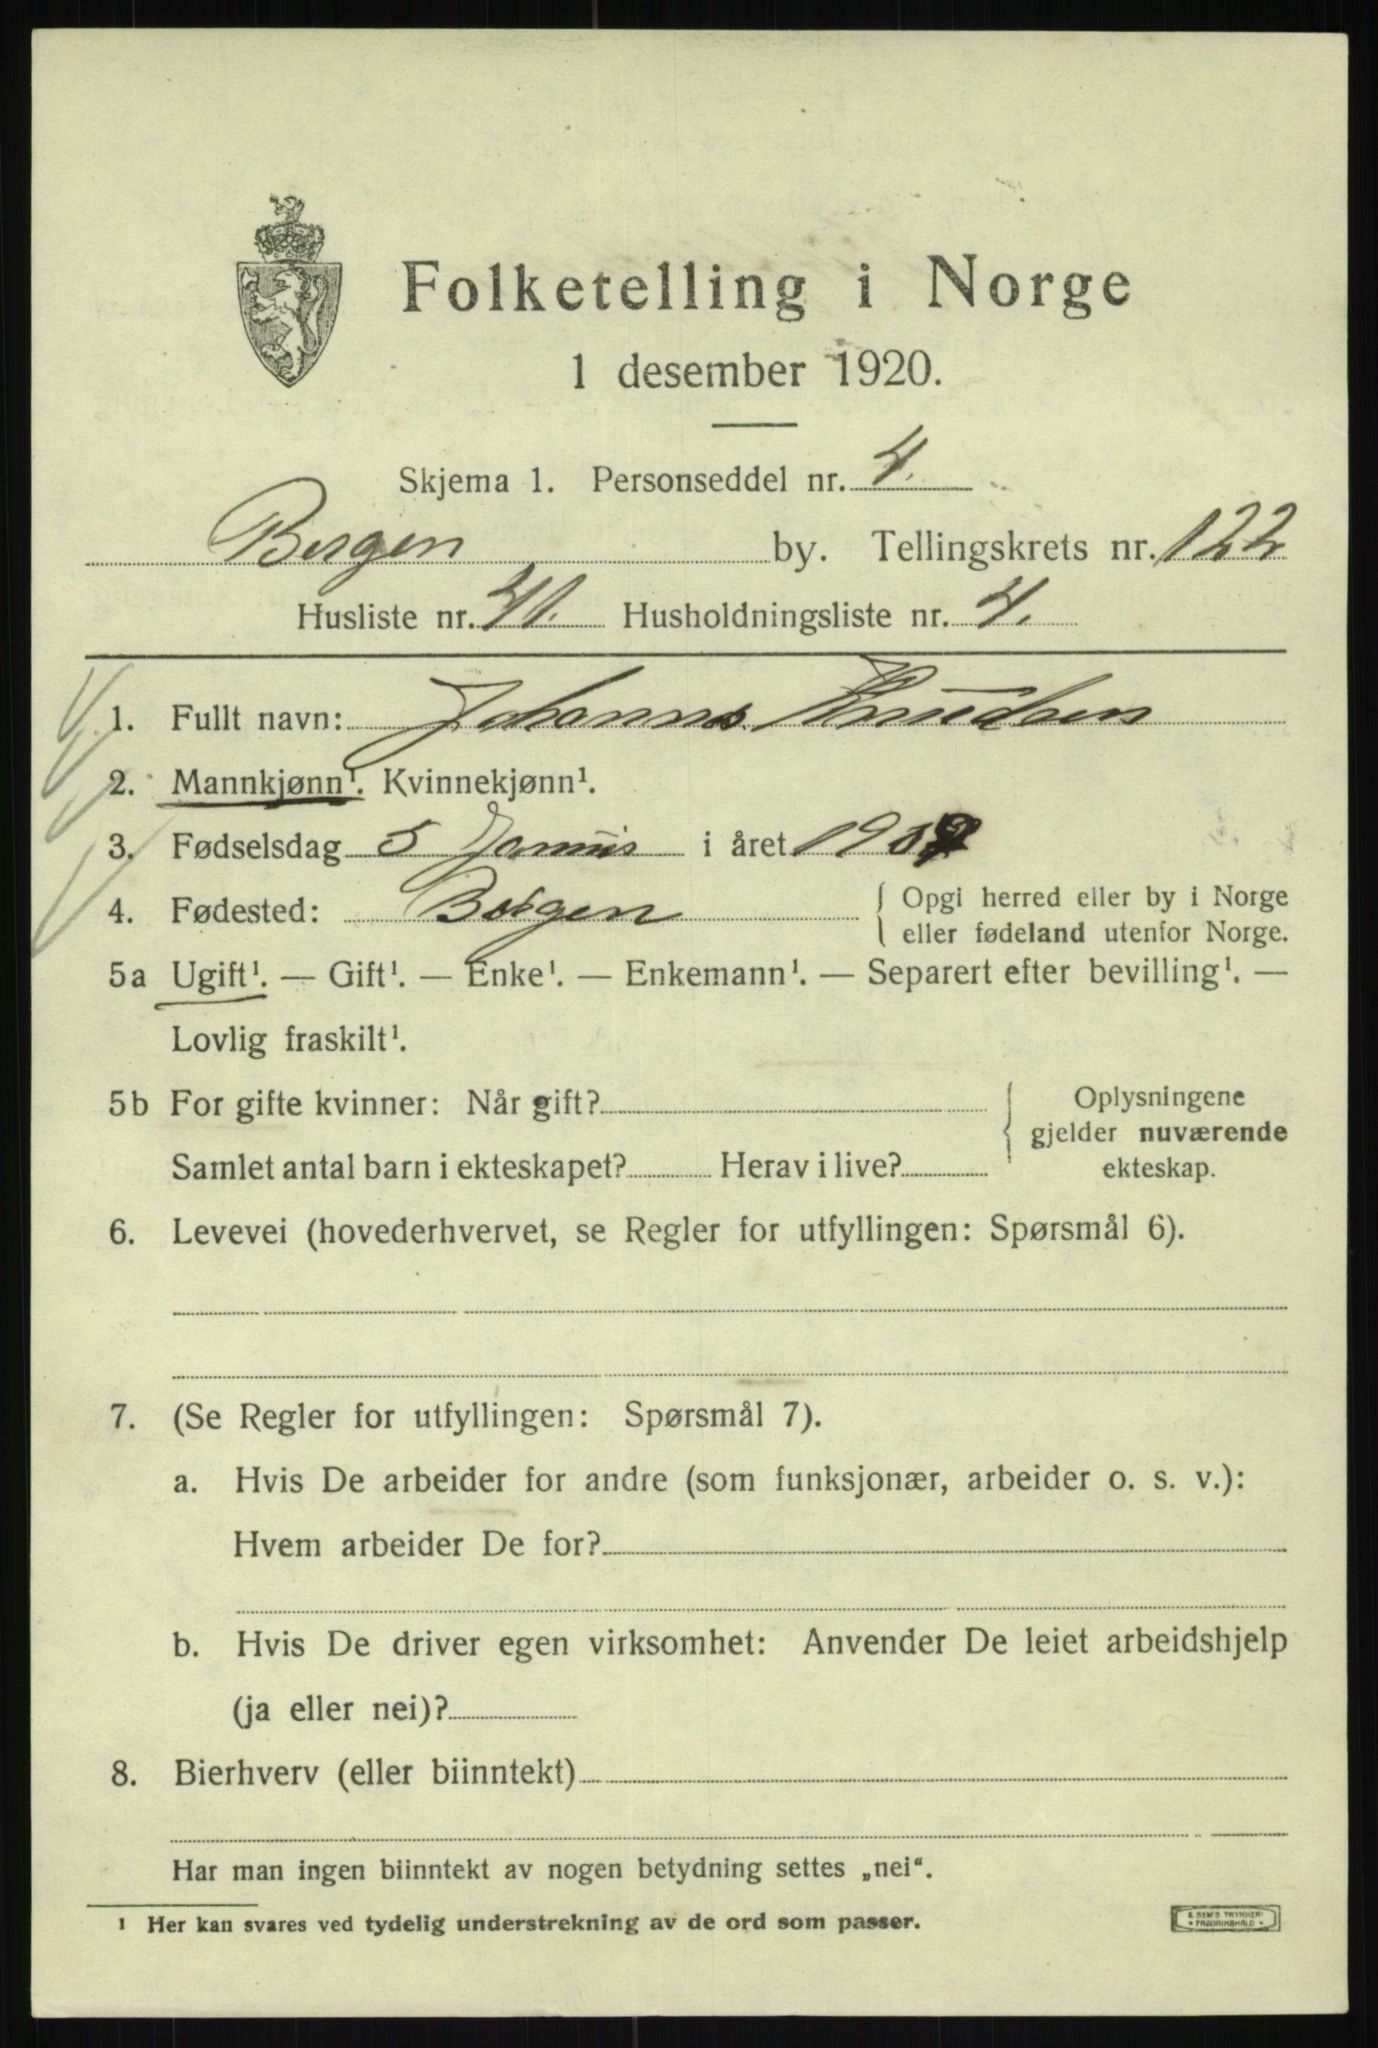 Folketelling i Norge
1 desember 1920.
Skjema 1. Personseddel nr. 4.
Bergen by. Tellingskrets nr. 122
Husliste nr. 41. Husholdningsliste nr. 4.
1. Fullt navn: Johannes Knudsen
2. Mannkjønn¹. Kvinnekjønn¹.
3. Fødselsdag 5 i året
4. Fødested: Bergen { Opgi herred eller by i Norge
eller fødeland utenfor Norge.
5a Ugift¹. — Gift¹. — Enke¹. — Enkemann¹. — Separert efter bevilling¹. —
Lovlig fraskilt¹.
5b For gifte kvinner: Når gift? { Oplysningene
gjelder nuværende
Samlet antal barn i ekteskapet? Herav i live? ekteskap.
6. Levevei (hovederhvervet, se Regler for utfyllingen: Spørsmål 6).
7. (Se Regler for utfyllingen: Spørsmål 7).
a. Hvis De arbeider for andre (som funksjonær, arbeider o. s. v.):
Hvem arbeider De for?
b. Hvis De driver egen virksomhet: Anvender De leiet arbeidshjelp
(ja eller nei)?
8. Bierhverv (eller biinntekt)
Har man ingen biinntekt av nogen betydning settes „nei“.
¹ Her kan svares ved tydelig understrekning av de ord som passer.
E SEM'S TRYKKERI
• FREDRIKSHALD •